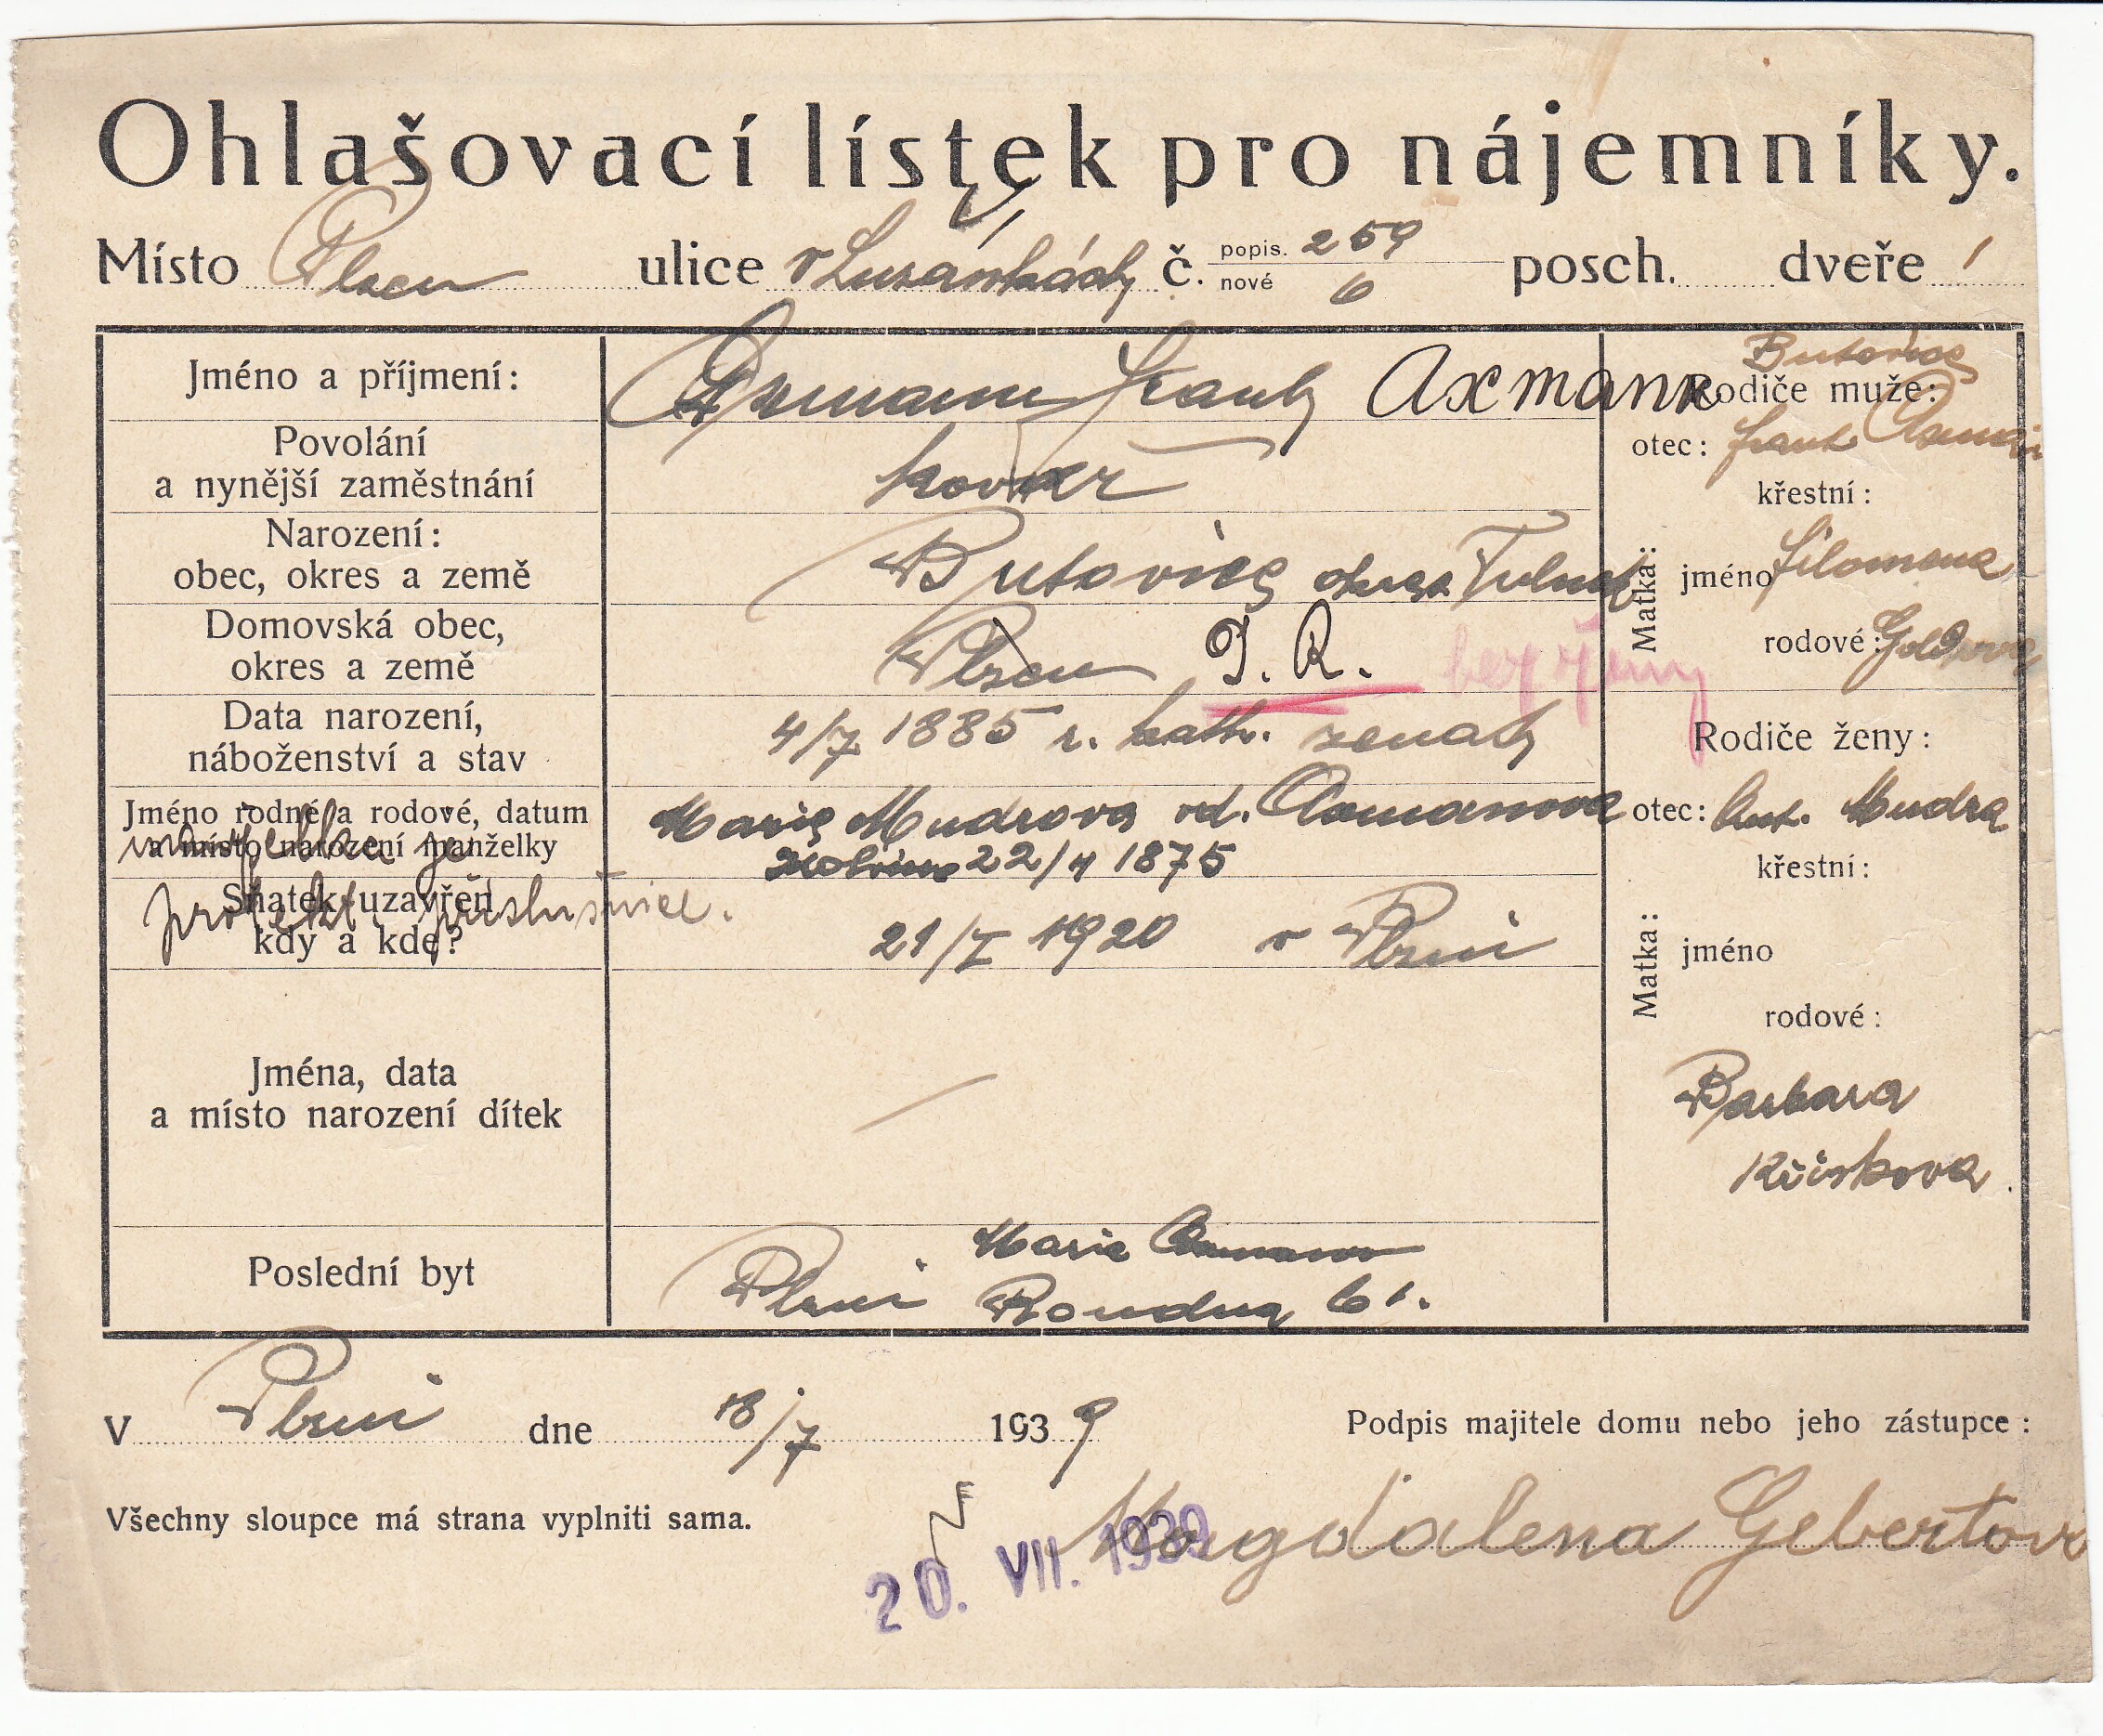 Ohlašovací lístek pro nájemníky.
Místo Plzeň ulice v Lusánkách č. popis. 259 posch. dveře 1
nové 6
Jméno a příjmení: Axmann Frant. Axmann
Povolání
a nynější zaměstnání kovář
Narození:
obec, okres a země Butovice okres
Domovská obec,
okres a země Plzen D. R.
Data narození,
náboženství a stav 4/7 1885 r. kath. ženatý
Jméno rodné a rodové, datum
a místo narození manželky
Marie Mudrova
22/4 1875
manželka je
protekt. příslušnice.
Sňatek uzavřen
kdy a kde? 21/I 1920 v Plzni
Jména, data
a místo narození dítek
Poslední byt Marie
Plzni Roudna 61.
Butovice
Rodiče muže:
otec: Frant. Axman
křestní:
Matka: jméno Filomena
rodové:
Rodiče ženy:
otec: Ant. Mudra
křestní:
Matka: jméno
rodové:
Barbara
V Plzni dne 18/7 1939 Podpis majitele domu nebo jeho zástupce:
Všechny sloupce má strana vyplniti sama.
Magdalena Gebertova
20. VII. 1939